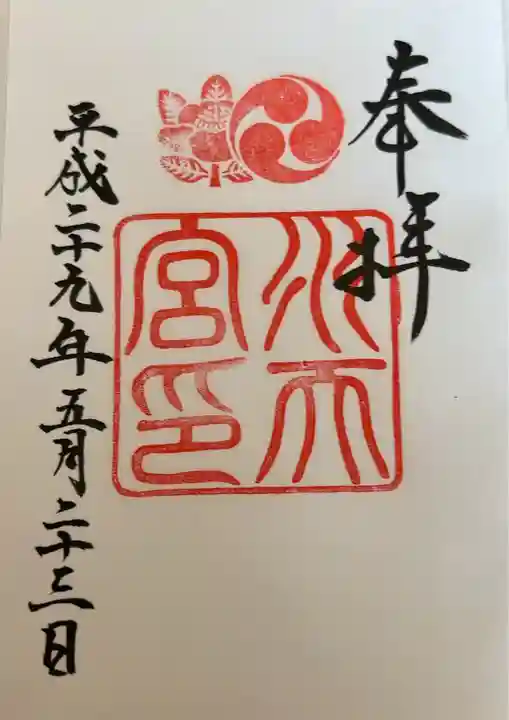 奉拝
水天
宮印
平成二十九年五月二十三日